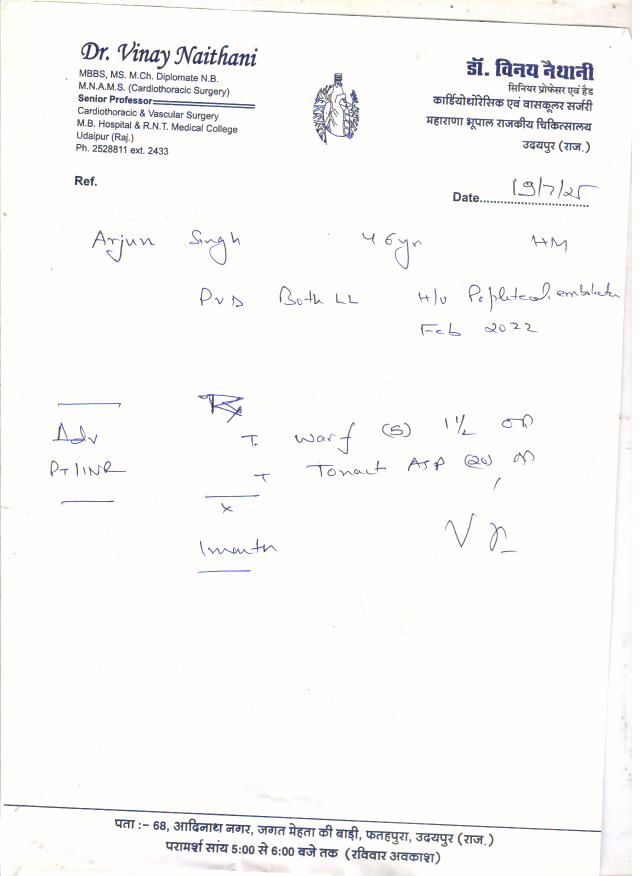 Dr. Vinay Naithani
MBBS, MS. M.Ch. Diplomate N.B.
M.N.A.M.S. (Cardiothoracic Surgery)
Senior Professor
Cardiothoracic & Vascular Surgery
M.B. Hospital & R.N.T. Medical College
Udaipur (Raj.)
Ph. 2528811 ext. 2433
डॉ. विनय नैथानी
सिनियर प्रोफेसर एवं हैड
कार्डियोथोरेसिक एवं वासकूलर सर्जरी
महाराणा भूपाल राजकीय चिकित्सालय
उदयपुर (राज.)
Ref.
Date 19/7/25
Arjun Singh 46yr
PVD Both LL H/o Popliteal
Feb 2022
Rx
Adv
T. Warf (5) 1½ OD
PT/INR
T Tonact ASP (20) OD
x
1 month
पता :– 68, आदिनाथ नगर, जगत मेहता की बाड़ी, फतहपुरा, उदयपुर (राज.)
परामर्श सांय 5:00 से 6:00 बजे तक (रविवार अवकाश)